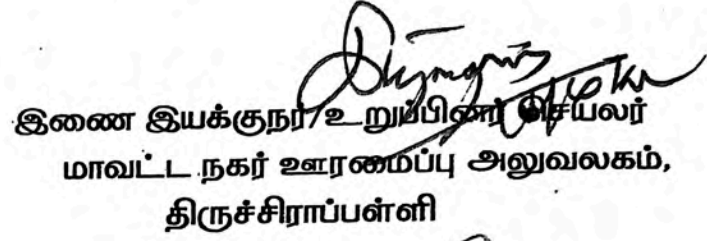 இணை இயக்குநர்/உறுப்பினர் செயலர்
மாவட்ட நகர் ஊரமைப்பு அலுவலகம்,
திருச்சிராப்பள்ளி